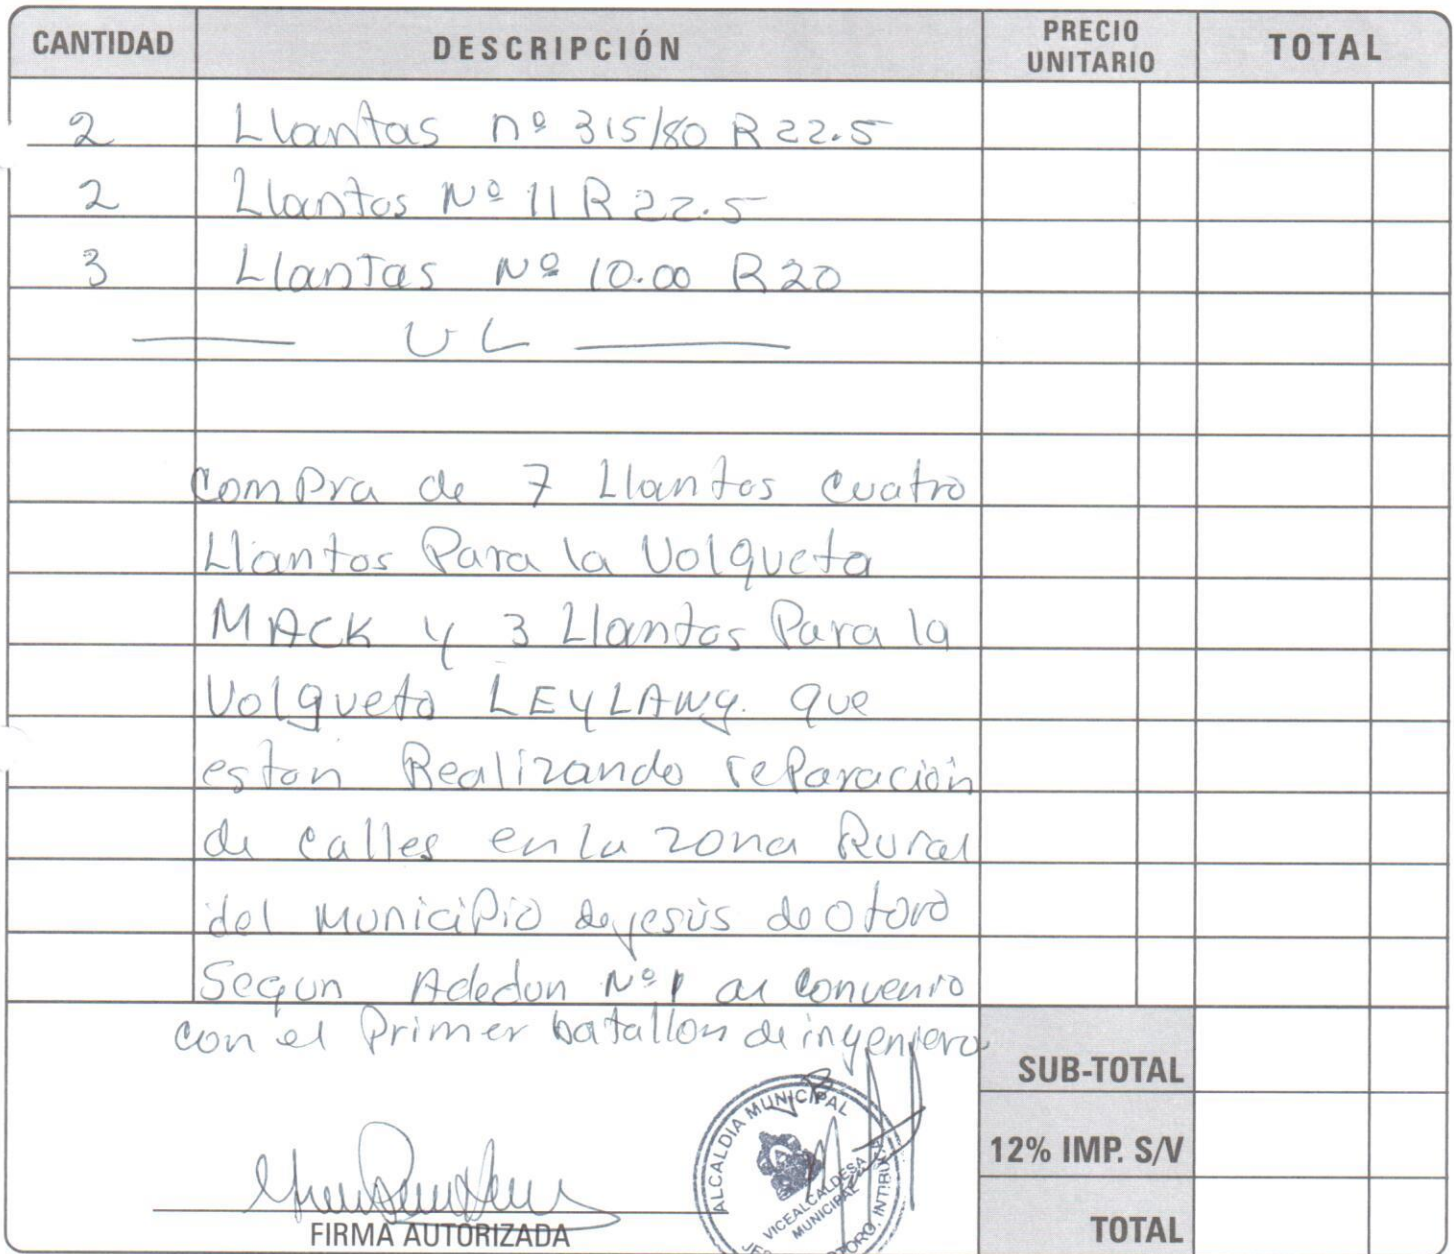 CANTIDAD DESCRIPCIÓN PRECIO UNITARIO TOTAL
2 Llantas nº 315/80 R 22.5
2 Llantas Nº 11 R 22.5
3 Llantas Nº 10.00 R20
UL
Compra de 7 Llantas cuatro
Llantas Para la Volqueta
MACK y 3 Llantas Para la
Volqueta LEYLAND. que
estan Realizando reParación
de calles en la zona Rural
del municiPio de jesús de Otoro
Segun Adedun Nº1 al Convenio
con el Primer batallon de ingeniero
SUB-TOTAL
12% IMP. S/V
TOTAL
FIRMA AUTORIZADA
ALCALDIA MUNICIPAL
VICEALCALDESA
MUNICIPAL
OTORO, INTIBUCA